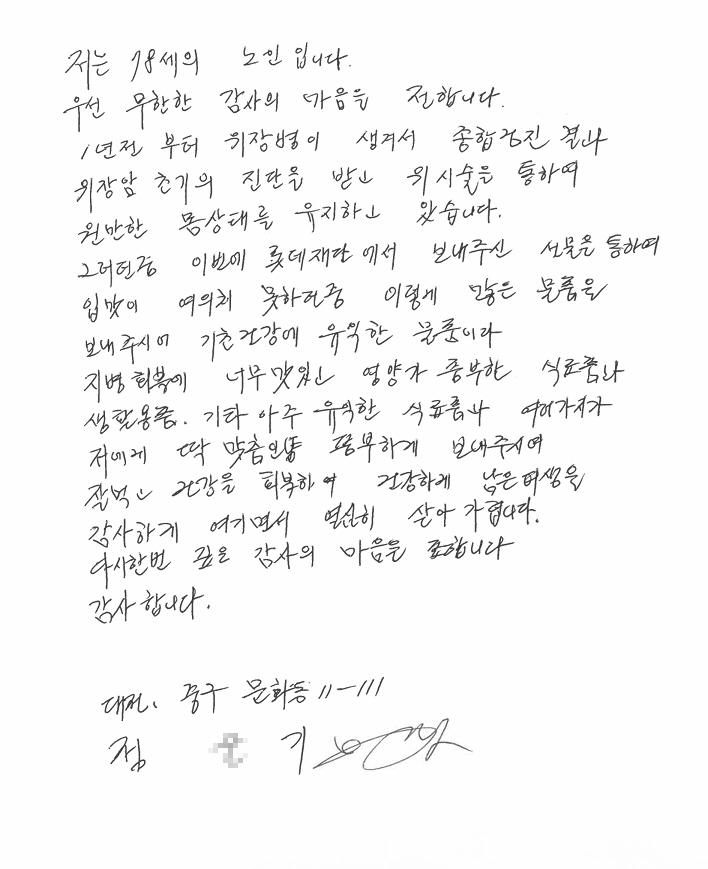 저는 78세의 노인입니다.
우선 무한한 감사의 마음을 전합니다.
1년전 부터 위장병이 생겨서 종합검진 결과
위장암 초기의 진단을 받고 위시술을 통하여
원만한 몸상태를 유지하고 있습니다.
그러던중 이번에 롯데재단에서 보내주신 선물을 통하여
입맛이 여의치 못하던중 이렇게 많은 물품을
보내주시어 기초건강에 유익한 물품이라
지병회복에 너무 맛있고 영양가 풍부한 식료품과
생활용품. 기타 아주 유익한 식료품과 여러가지가
저에게 딱 맞춤인양 풍부하게 보내주시여
잘먹고 건강을 회복하여 건강하게 남은 여생을
감사하게 여기면서 열심히 살아 가렵니다.
다시한번 깊은 감사의 마음을 표합니다
감사합니다.
대전. 중구 문화동 11-111
정 기